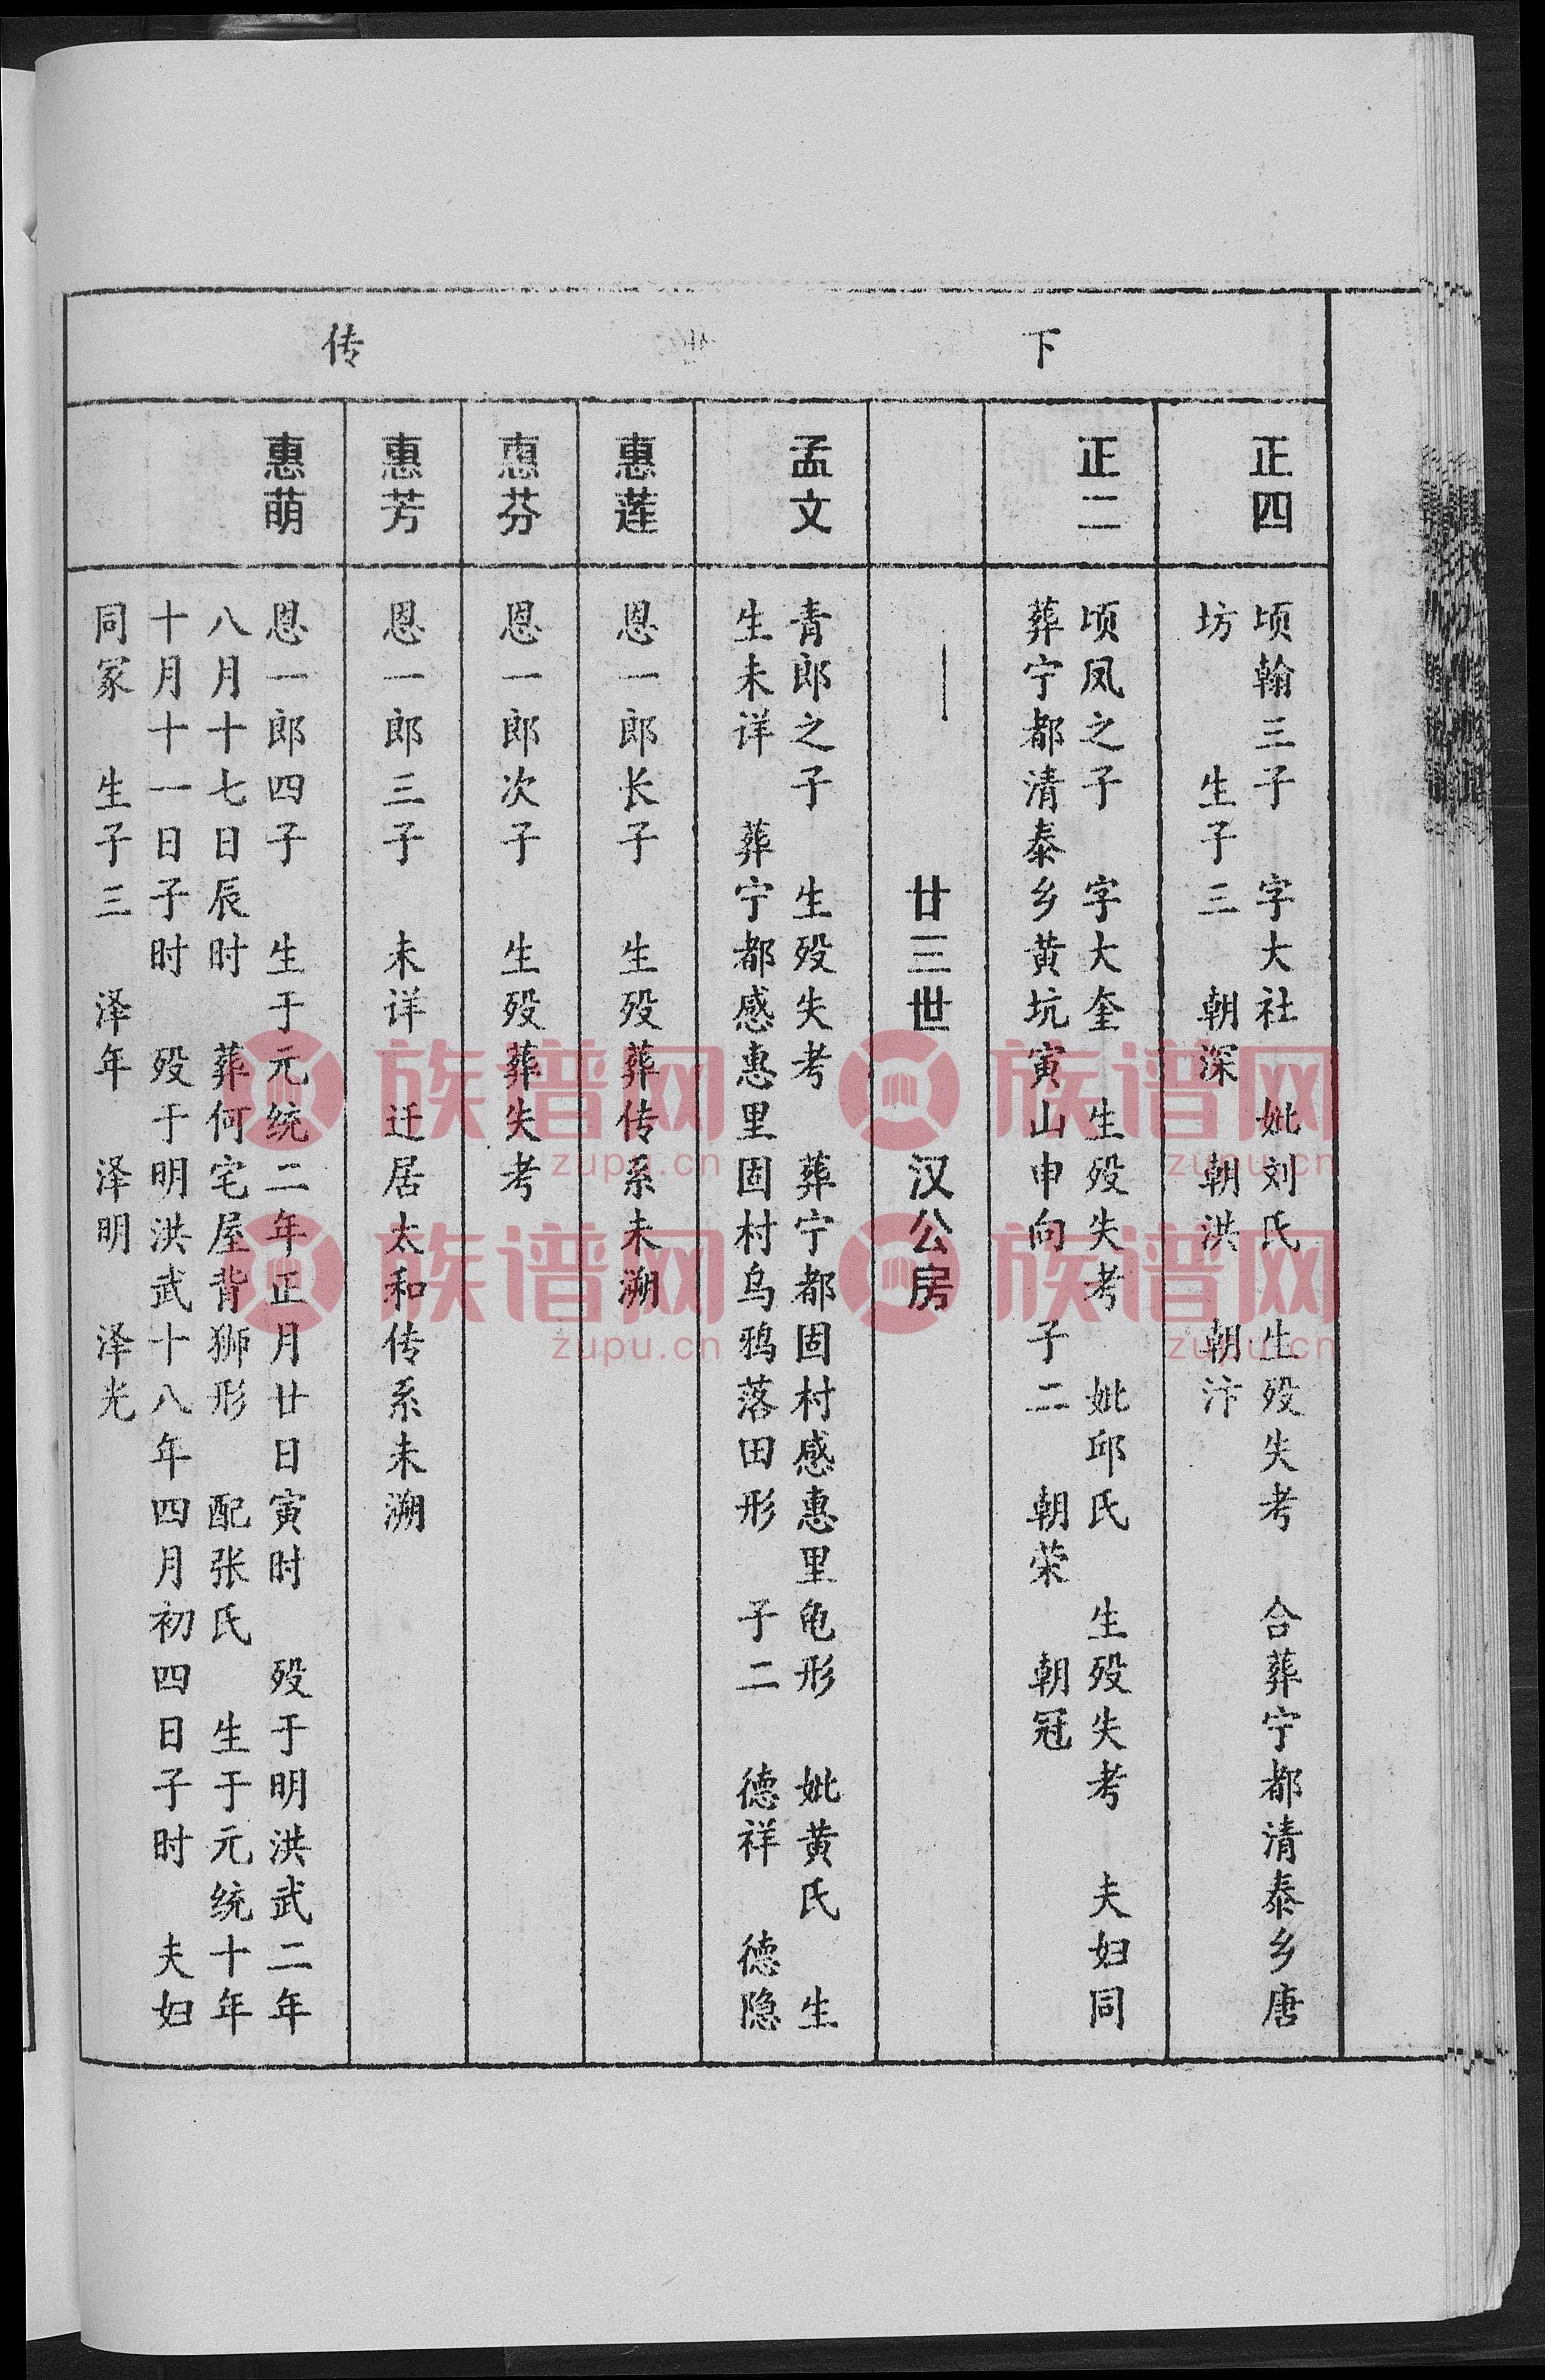 下
传
正四
顷翰三子 字大社 妣刘氏 生殁失考 合葬宁都清泰乡唐
坊 生子三 朝深 朝洪 朝汴
正二
顷凤之子 字大奎 生殁失考 妣邱氏 生殁失考 夫妇同
葬宁都清泰乡黄坑寅山申向 子二 朝荣 朝冠
廿三世 汉公房
孟文
青郎之子 生殁失考 葬宁都固村感惠里龟形 妣黄氏 生
生未详 葬宁都感惠里固村乌鸦落田形 子二 德祥 德隐
惠莲
恩一郎长子 生殁葬传系未溯
惠芬
恩一郎次子 生殁葬失考
惠芳
恩一郎三子 未详 迁居太和传系未溯
惠萌
恩一郎四子 生于元统二年正月廿日寅时 殁于明洪武二年
八月十七日辰时 葬何宅屋背狮形 配张氏 生于元统十年
十月十一日子时 殁于明洪武十八年四月初四日子时 夫妇
同冢 生子三 泽年 泽明 泽光
族谱网
zupu.cn
族谱网
zupu.cn
族谱网
zupu.cn
族谱网
zupu.cn